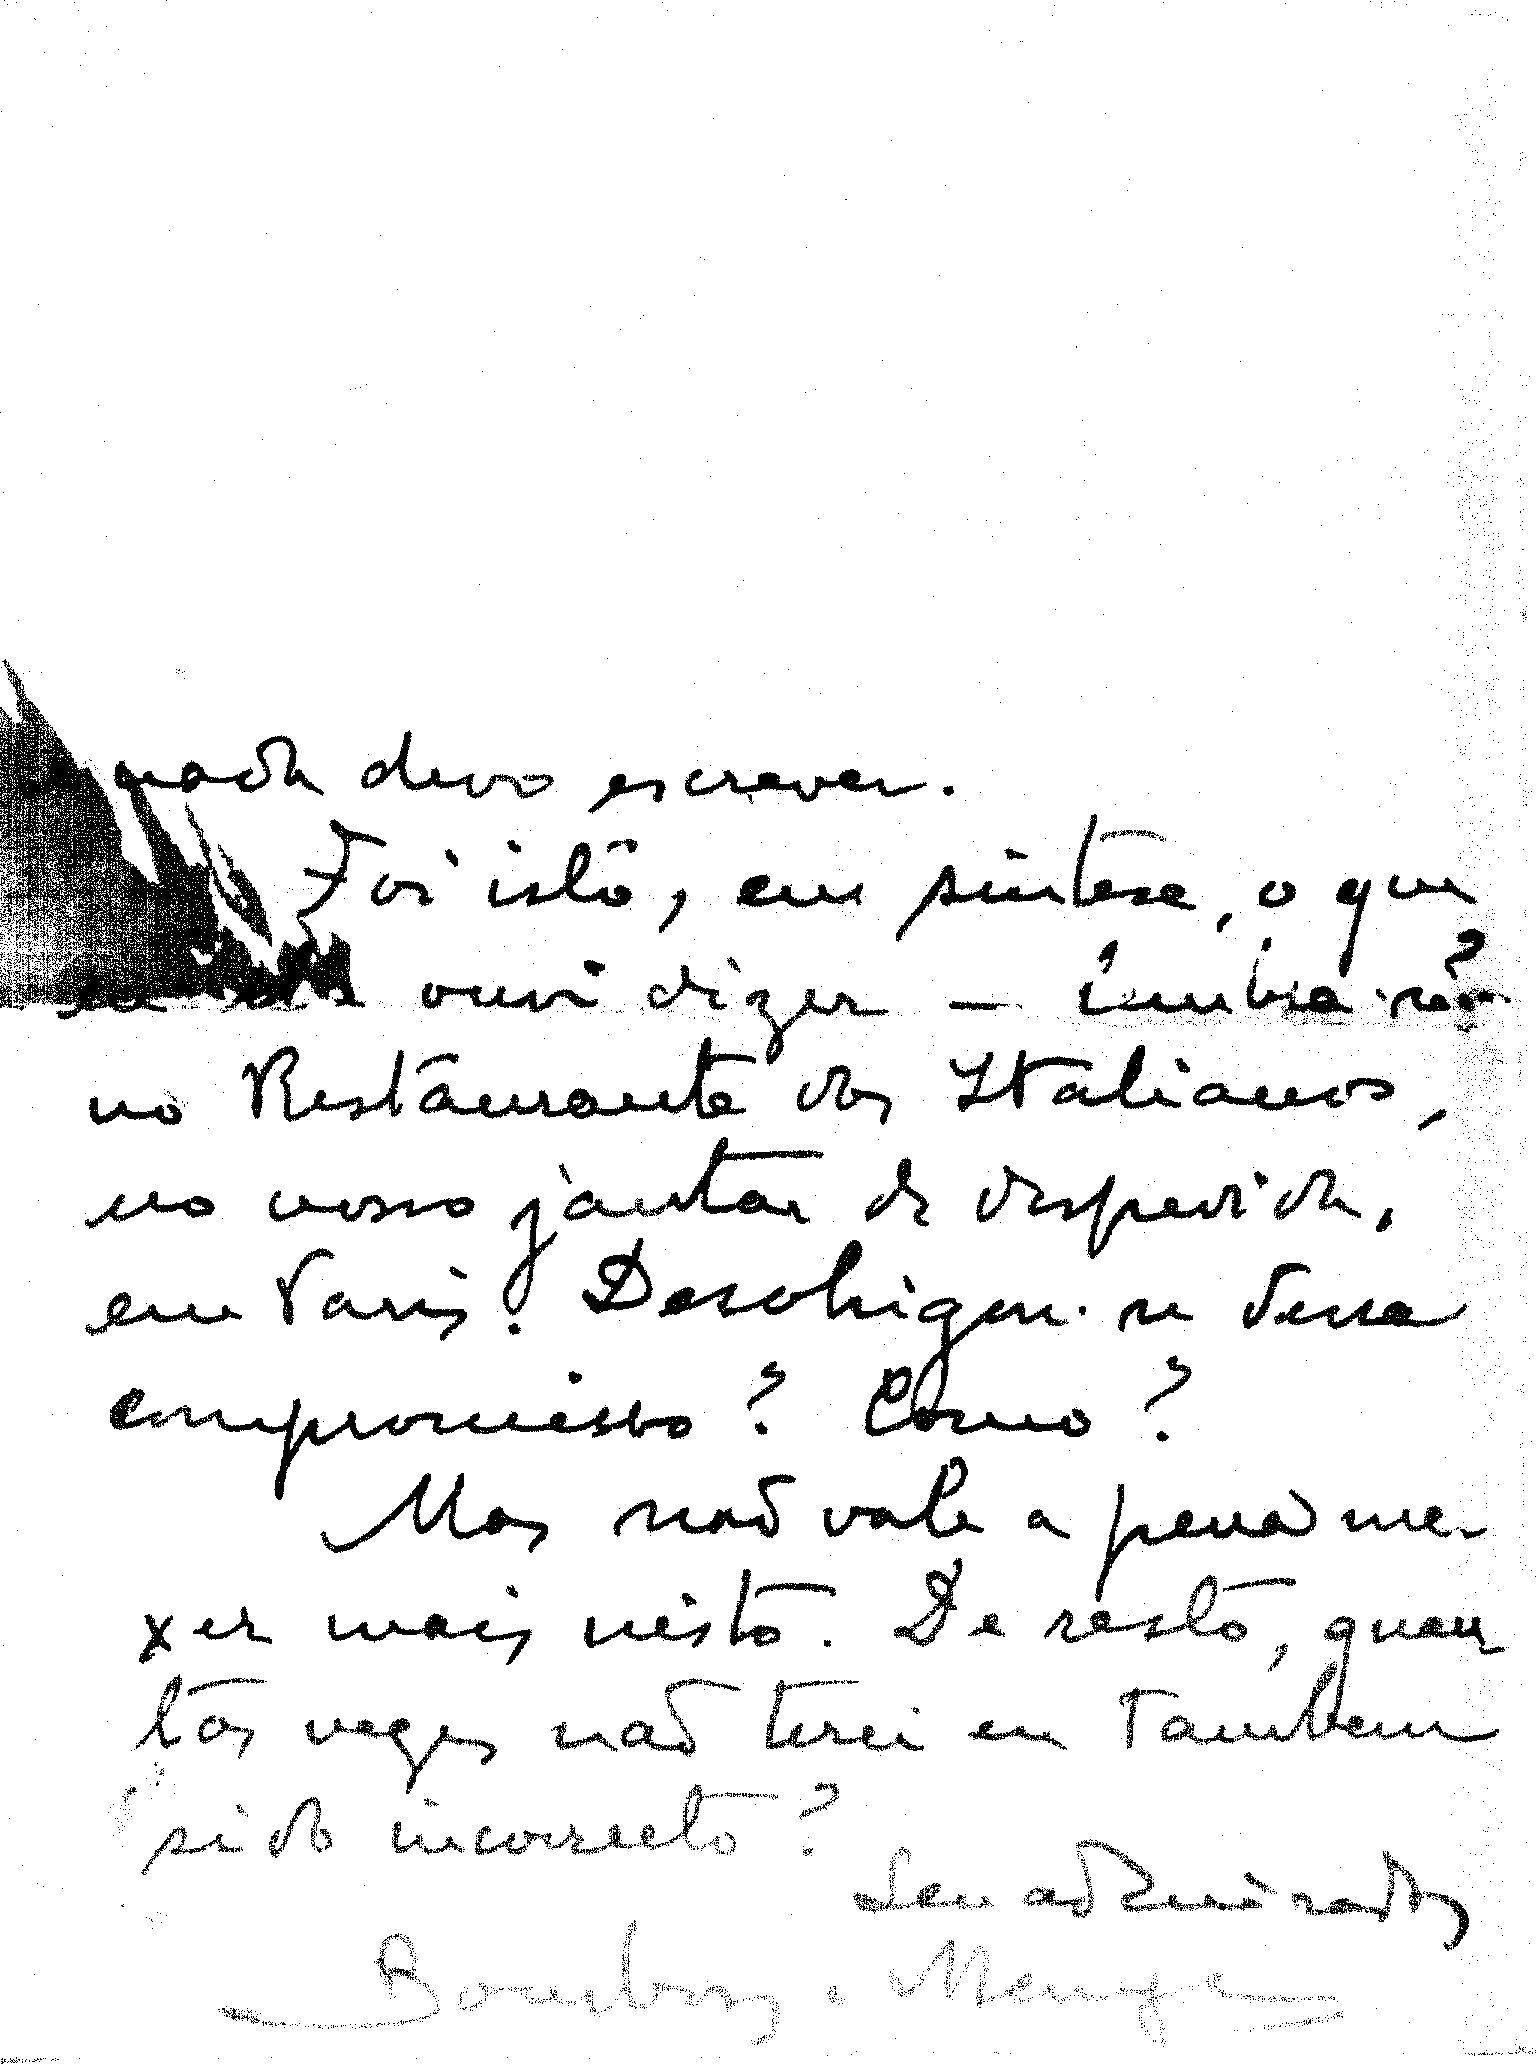 nada devo escrever.
Foi isto, em sintese, o que
eu lhe ouvi dizer — lembra-se?
no Restaurante dos Italianos,
no nosso jantar de despedida,
em Paris. Desobrigou-se desse
compromisso? Como?
Mas não vale a pena me-
xer mais nisto. De resto, quan-
tas vezes não terei eu tambem
sido incorrecto?
Seu admirador
Bourbon e Menezes